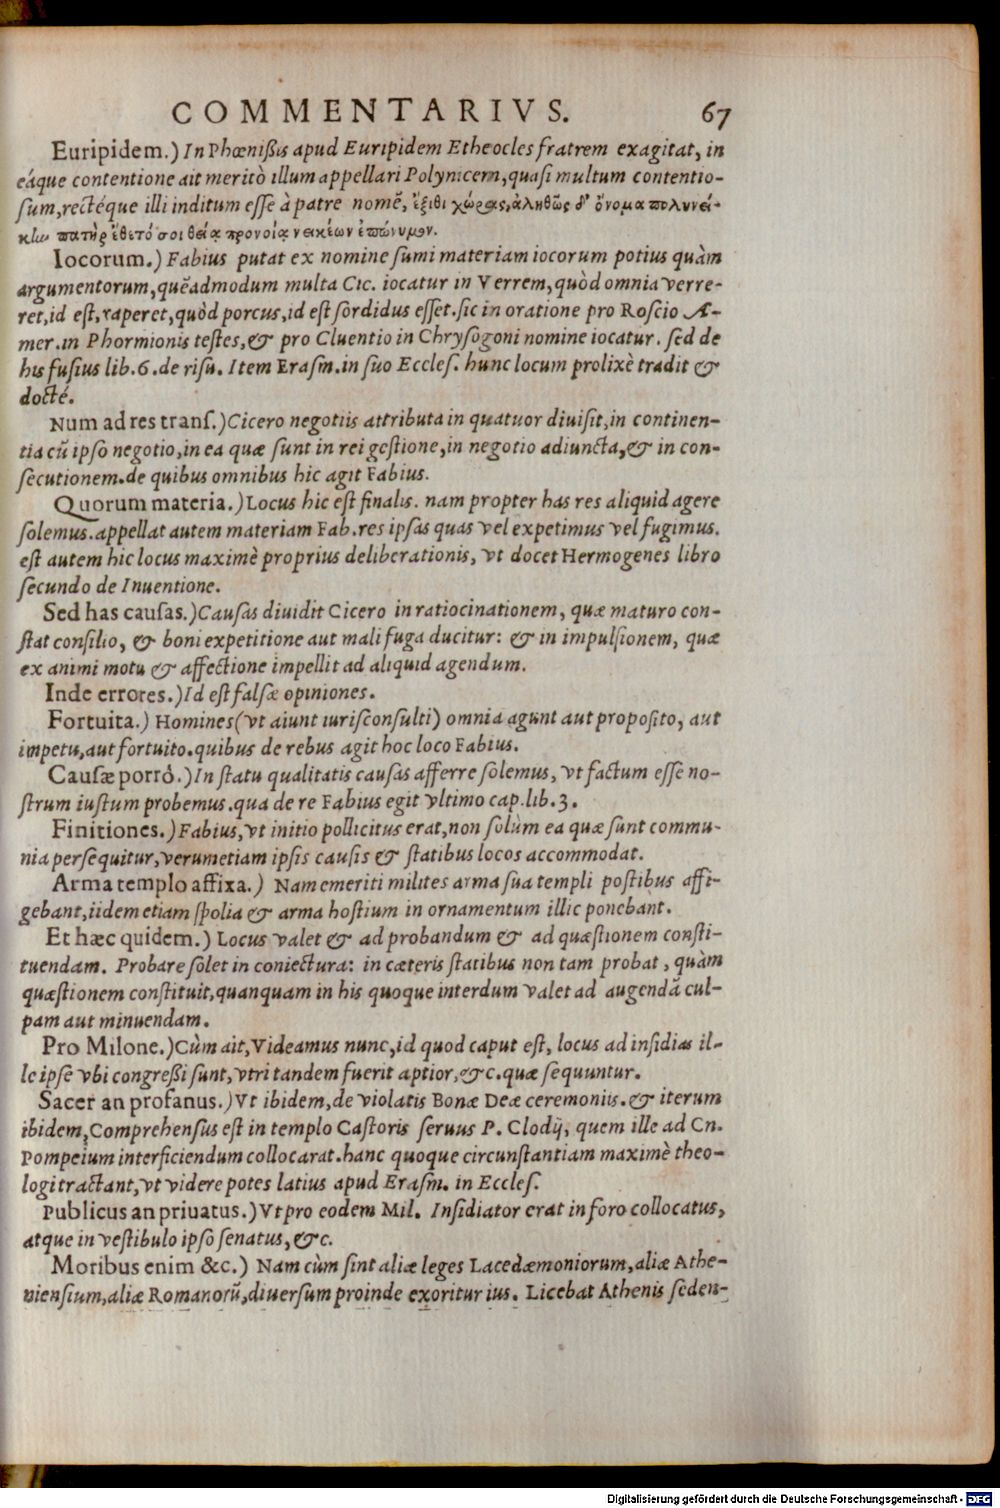 COMMENTARIVS. 67
Euripidem.) In Phœnißis apud Euripidem Etheocles fratrem exagitat, in
eáque contentione ait meritò illum appellari Polynicem, quasi multum contentio-
sum, rectéque illi inditum esse à patre nomē, ἔξιθι χώρας, ἀληθῶς δ' ὄνομα πολυνεί-
κlω πατὴρ ἔθετό σοι θείᾳ προνοίᾳ νεικέων ἐπώνυμον.
Iocorum.) Fabius putat ex nomine sumi materiam iocorum potius quàm
argumentorum, quēadmodum multa Cic. iocatur in Verrem, quòd omnia verre-
ret, id est, raperet, quòd porcus, id est sordidus esset. sic in oratione pro Roscio A-
mer. in Phormionis testes, & pro Cluentio in Chrysogoni nomine iocatur. sed de
his fusius lib. 6. de risu. Item Erasm. in suo Eccles. hunc locum prolixè tradit &
docté.
Num ad res trans.) Cicero negotiis attributa in quatuor diuisit, in continen-
tia cū ipso negotio, in ea quæ sunt in rei gestione, in negotio adiuncta, & in con-
secutionem. de quibus omnibus hic agit Fabius.
Quorum materia.) Locus hic est finalis. nam propter has res aliquid agere
solemus. appellat autem materiam Fab. res ipsas quas vel expetimus vel fugimus.
est autem hic locus maximè proprius deliberationis, vt docet Hermogenes libro
secundo de Inuentione.
Sed has causas.) Causas diuidit Cicero in ratiocinationem, quæ maturo con-
stat consilio, & boni expetitione aut mali fuga ducitur: & in impulsionem, quæ
ex animi motu & affectione impellit ad aliquid agendum.
Inde errores.) Id est falsæ opiniones.
Fortuita.) Homines (vt aiunt iurisconsulti) omnia agunt aut proposito, aut
impetu, aut fortuito. quibus de rebus agit hoc loco Fabius.
Causæ porrò.) In statu qualitatis causas afferre solemus, vt factum esse no-
strum iustum probemus. qua de re Fabius egit vltimo cap. lib. 3.
Finitiones.) Fabius, vt initio pollicitus erat, non solùm ea quæ sunt commu-
nia persequitur, verumetiam ipsis causis & statibus locos accommodat.
Arma templo affixa.) Nam emeriti milites arma sua templi postibus affi-
gebant, iidem etiam spolia & arma hostium in ornamentum illic ponebant.
Et hæc quidem.) Locus valet & ad probandum & ad quæstionem consti-
tuendam. Probare solet in coniectura: in cæteris statibus non tam probat, quàm
quæstionem constituit, quanquam in his quoque interdum valet ad augendā cul-
pam aut minuendam.
Pro Milone.) Cùm ait, Videamus nunc, id quod caput est, locus ad insidias il-
le ipse vbi congreßi sunt, vtri tandem fuerit aptior, &c. quæ sequuntur.
Sacer an profanus.) Vt ibidem, de violatis Bonæ Deæ ceremoniis. & iterum
ibidem, Comprehensus est in templo Castoris seruus P. Clodij, quem ille ad Cn.
Pompeium interficiendum collocarat. hanc quoque circunstantiam maximè theo-
logi tractant, vt videre potes latius apud Erasm. in Eccles.
Publicus an priuatus.) Vt pro eodem Mil. Insidiator erat in foro collocatus,
atque in vestibulo ipso senatus, &c.
Moribus enim &c.) Nam cùm sint aliæ leges Lacedæmoniorum, aliæ Athe-
niensium, aliæ Romanorū, diuersum proinde exoritur ius. Licebat Athenis seden-
Digitalisierung gefördert durch die Deutsche Forschungsgemeinschaft - DFG